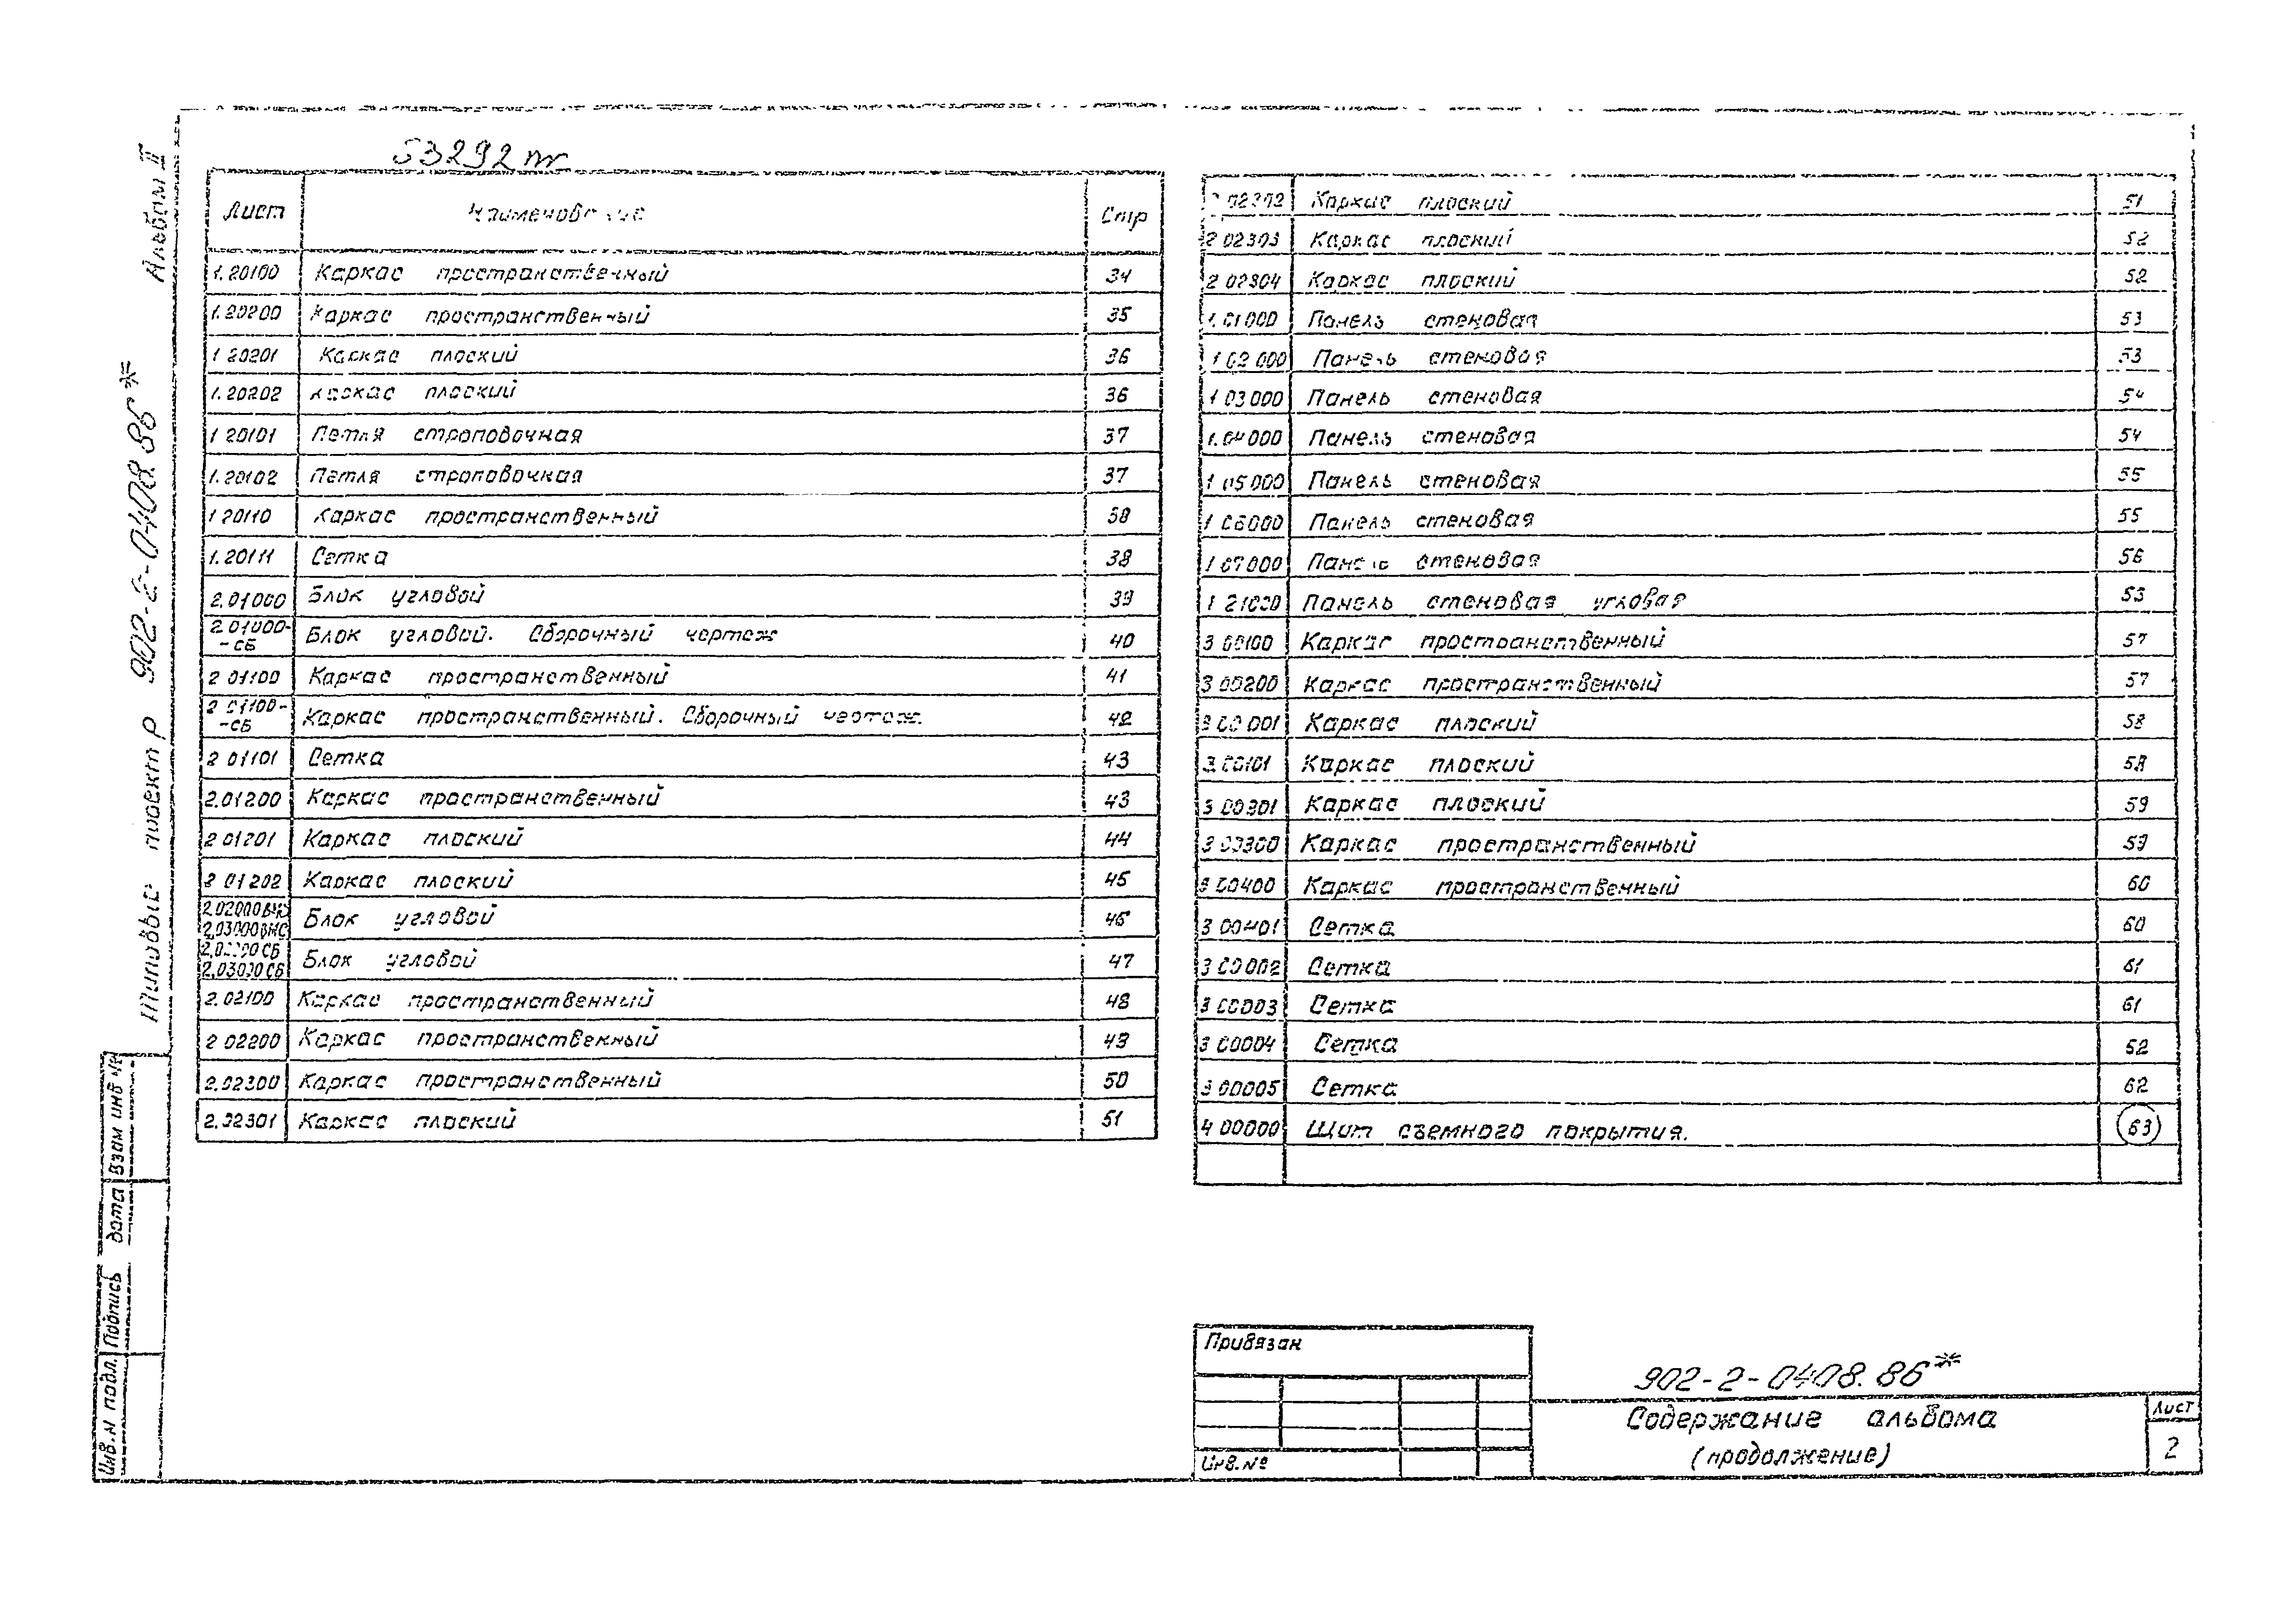 53292 тг
Альбом II
Типовой проект Р 902-2-0408.86*
Лист Наименование Стр
1.20100 Каркас пространственный 34
1.20200 Каркас пространственный 35
1 20201 Каркас плоский 36
1.20202 Каркас плоский 36
1 20101 Петля строповочная 37
1.20102 Петля строповочная 37
1 20110 Каркас пространственный 38
1.20111 Сетка 38
2.01000 Блок угловой 39
2 01000-
-СБ Блок угловой. Сборочный чертеж 40
2 01100 Каркас пространственный 41
2 01100-
-СБ Каркас пространственный. Сборочный чертеж. 42
2 01101 Сетка 43
2.01200 Каркас пространственный 43
2 01201 Каркас плоский 44
2 01202 Каркас плоский 45
2.02000ВМС
2.03000ВМС Блок угловой 46
2.02000СБ
2.03000СБ Блок угловой 47
2.02100 Каркас пространственный 48
2 02200 Каркас пространственный 49
2.02300 Каркас пространственный 50
2.02301 Каркас плоский 51
2 02302 Каркас плоский 51
2 02303 Каркас плоский 52
2 02304 Каркас плоский 52
1.01000 Панель стеновая 53
1 02 000 Панель стеновая 53
1 03 000 Панель стеновая 54
1.04 000 Панель стеновая 54
1 05 000 Панель стеновая 55
1 06000 Панель стеновая 55
1 07000 Панель стеновая 56
1 21000 Панель стеновая угловая 53
3 00100 Каркас пространственный 57
3 00200 Каркас пространственный 57
3 00 001 Каркас плоский 58
3.00101 Каркас плоский 58
3 00301 Каркас плоский 59
3 00300 Каркас пространственный 59
3 00400 Каркас пространственный 60
3 00401 Сетка 60
3 00002 Сетка 61
3 00003 Сетка 61
3 00004 Сетка 52
3 00005 Сетка 62
4 00000 Щит съемного покрытия. 63
Взам инв №
Подпись дата
Инв. N подл.
Привязан
Инв. №
902-2-0408.86*
Содержание альбома
(продолжение)
Лист
2